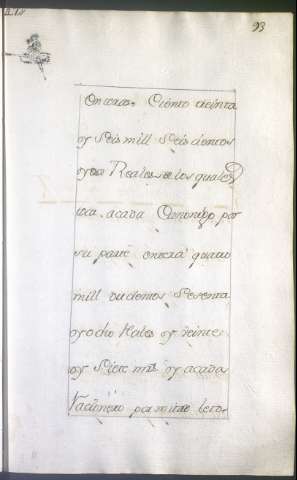 93
On couas, Ciento treinta
y Seis mill Seis cientos
y dos Reales de los quales
toca, acada Canonigo por
su parte onceza quatro
mill ducientos Sesenta
y ocho Reales y veinte
y Siete mrs y acada
Racionero por mitad le to-